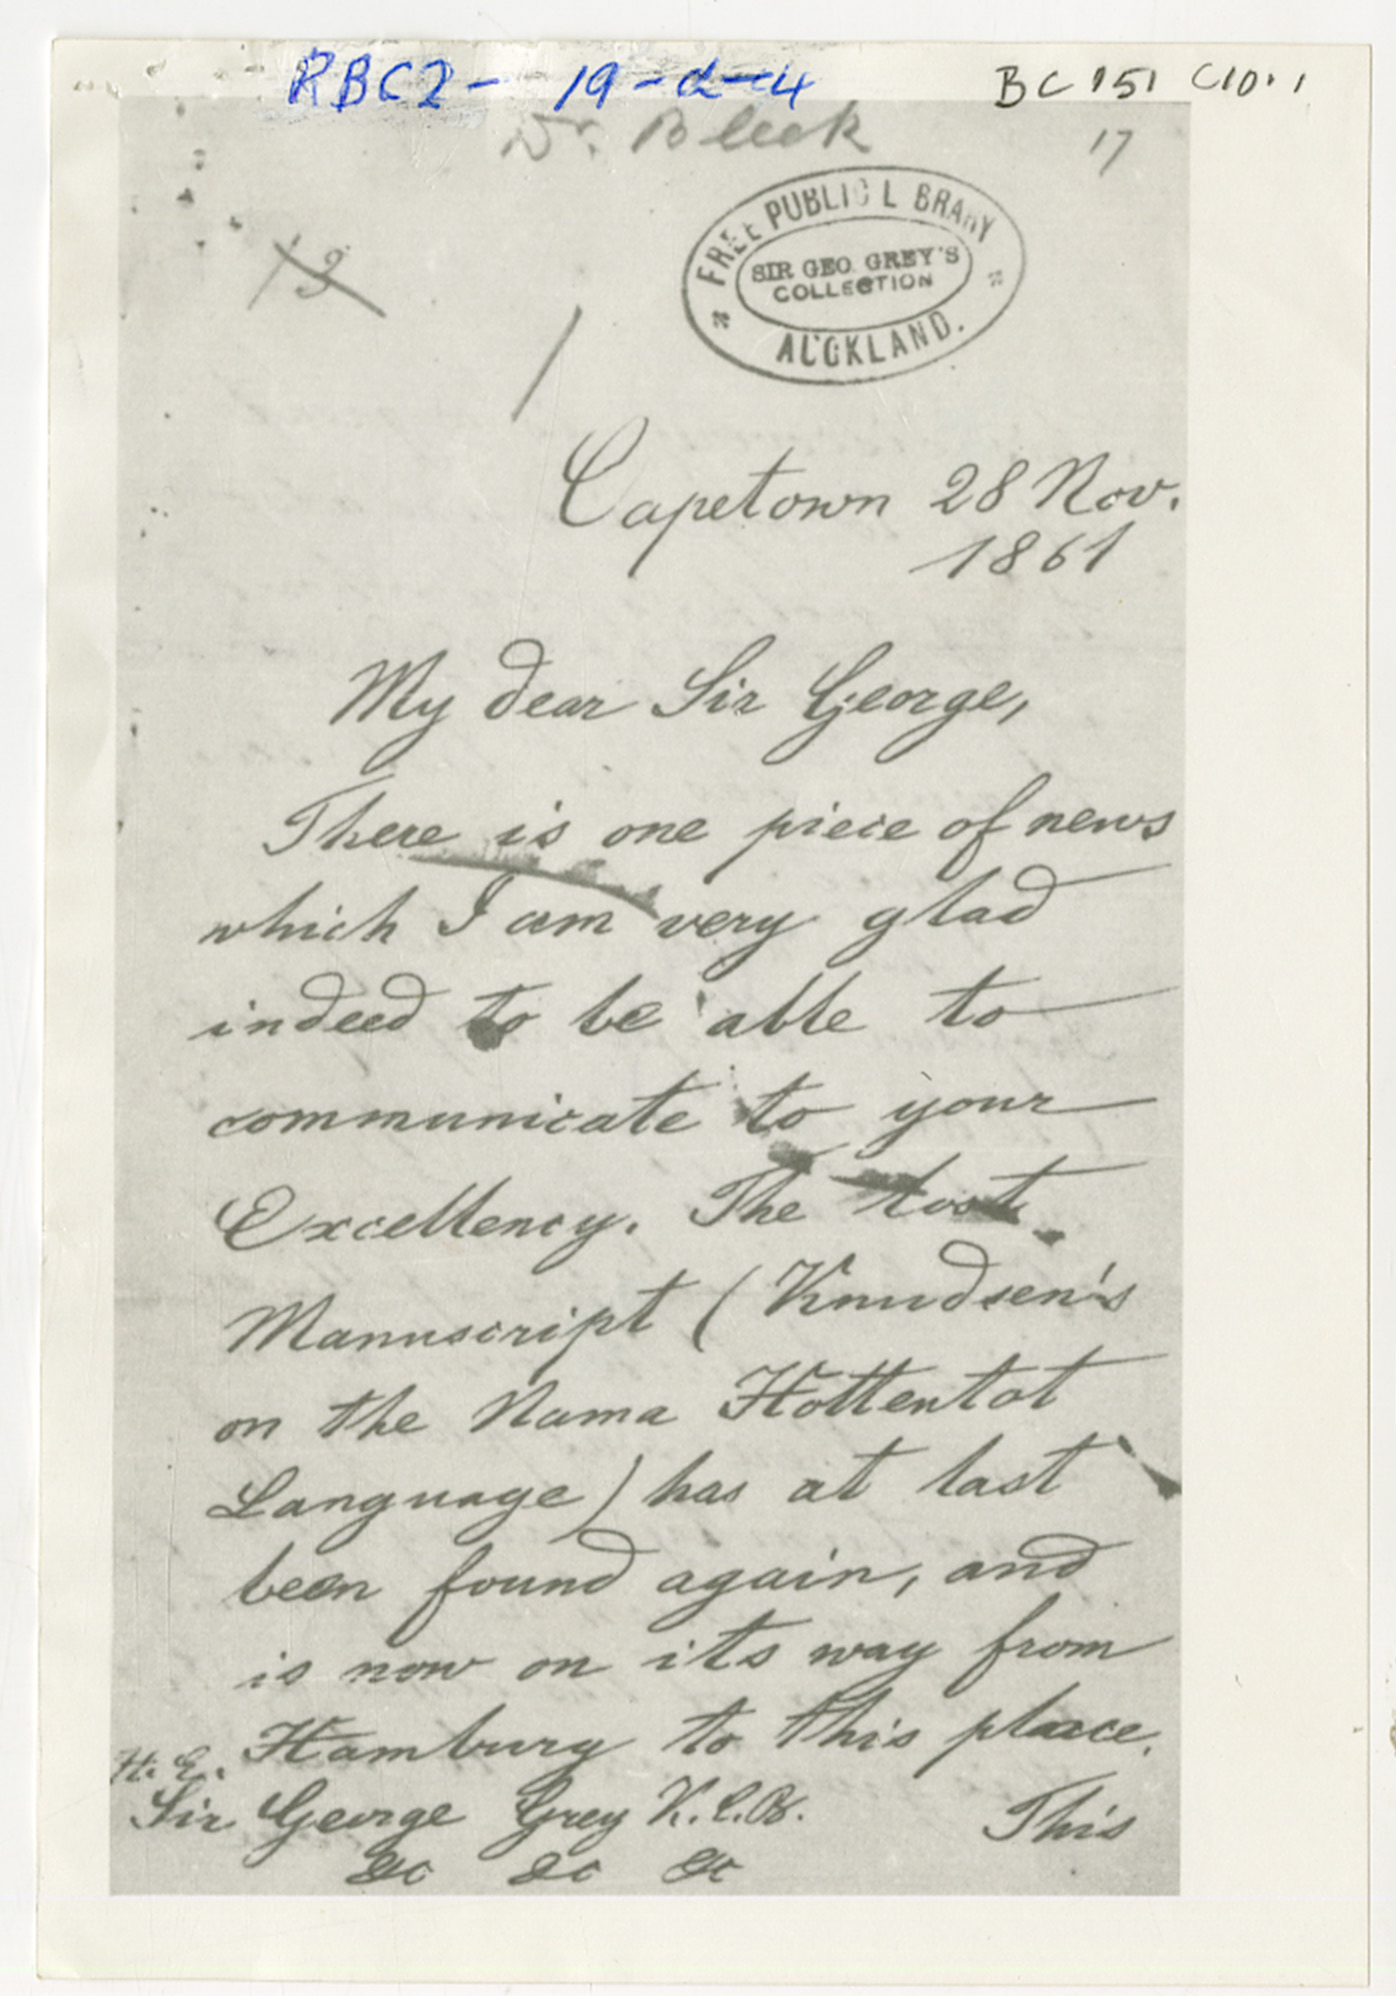 RBC2- 19-d-4
BC 151 C10.1
Dr. Bleek
17
FREE PUBLIC L BRARY
SIR GEO. GREY'S
COLLECTION
AUCKLAND.
13
Capetown 28 Nov.
1861
My dear Sir George,
There is one piece of news
which I am very glad
indeed to be able to
communicate to your
Excellency. The lost
Manuscript (Knudsen's
on the Nama Hottentot
Language) has at last
been found again, and
is now on its way from
Hamburg to this place.
H. E.
Sir George Grey K.C.B.
This
&c &c &c